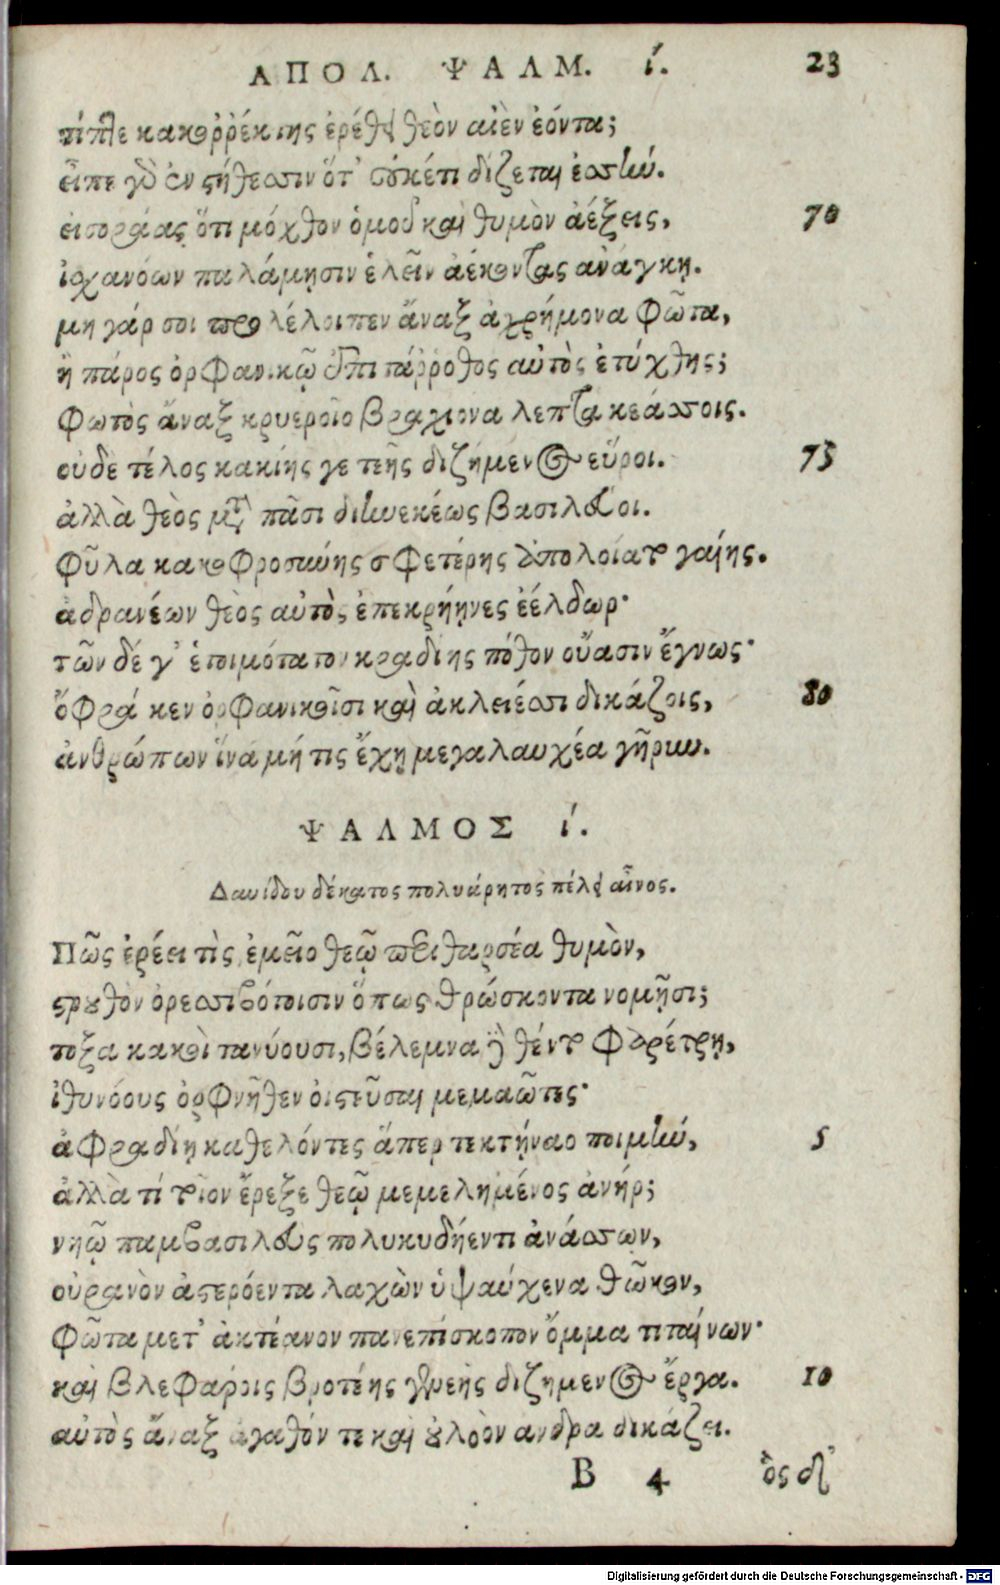 ΑΠΟΛ. ΨΑΛΜ. ί. 23
τίπτε κακοῤῥέκτης ἐρέθει θεὸν αἰὲν ἐόντα;
εἶπε γὰρ ἐν στήθεσσιν ὅτ' οὐκέτι δίζεται ἐσσὺν.
εἰσοράας ὅτι μόχθον ὁμοῦ καὶ θυμὸν ἀέξεις, 70
ἰσχανόων παλάμῃσιν ἑλεῖν ἀέκοντας ἀνάγκῃ.
μὴ γάρ σοι προλέλοιπεν ἄναξ ἀχρήμονα φῶτα,
ἢ πάρος ὀρφανικῷ ἐπιτάῤῥοθος αὐτὸς ἐτύχθης;
φωτὸς ἄναξ κρυεροῖο βραχίονα λεπτὰ κεάσσοις.
οὐδὲ τέλος κακίης γε τεῆς διζήμενος εὕροι. 75
ἀλλὰ θεὸς μετὰ πᾶσι διηνεκέως βασιλεύοι.
φῦλα κακοφροσύνης σφετέρης ἀπολοίατο γαίης.
ἀδρανέων θεὸς αὐτὸς ἐπεκρήηνες ἐέλδωρ·
τῶν δέ γ' ἑτοιμότατον κραδίης πόθον οὔασιν ἔγνως·
ὄφρά κεν ὀρφανικοῖσι καὶ ἀκλειέσσι δικάζοις, 80
ἀνθρώπων ἵνα μή τις ἔχῃ μεγαλαυχέα γῆρυν.
ΨΑΛΜΟΣ ί.
Δαυίδου δέκατος πολυάρητος πέλει αἶνος.
Πῶς ἐρέει τὶς ἐμεῖο θεῷ πεποιθαρσέα θυμὸν,
στρουθὸν ὀρεσσιβότοισιν ὅπως θρώσκοντα νομῇσι;
τόξα κακοὶ τανύουσι, βέλεμνα δὲ θέντο φαρέτρῃ,
ἰθυνόους ὀρφνῆθεν ὀϊστεῦσαι μεμαῶτες·
ἀφραδίῃ καθελόντες ἅπερ τεκτήναο ποιμὴν, 5
ἀλλὰ τί τοῖον ἔρεξε θεῷ μεμελημένος ἀνήρ;
νηῷ παμβασιλεὺς πολυκυδήεντι ἀνάσσων,
οὐρανὸν ἀστερόεντα λαχὼν ὑψαύχενα θῶκον,
φῶτα μετ' ἀκτέανον πανεπίσκοπον ὄμμα τιταίνων·
καὶ βλεφάροις βροτέης γενεῆς διζήμενος ἔργα. 10
αὐτὸς ἄναξ ἀγαθόν τε καὶ οὐλοὸν ἄνδρα δικάζει.
B 4 ὃς δ'
Digitalisierung gefördert durch die Deutsche Forschungsgemeinschaft - DFG